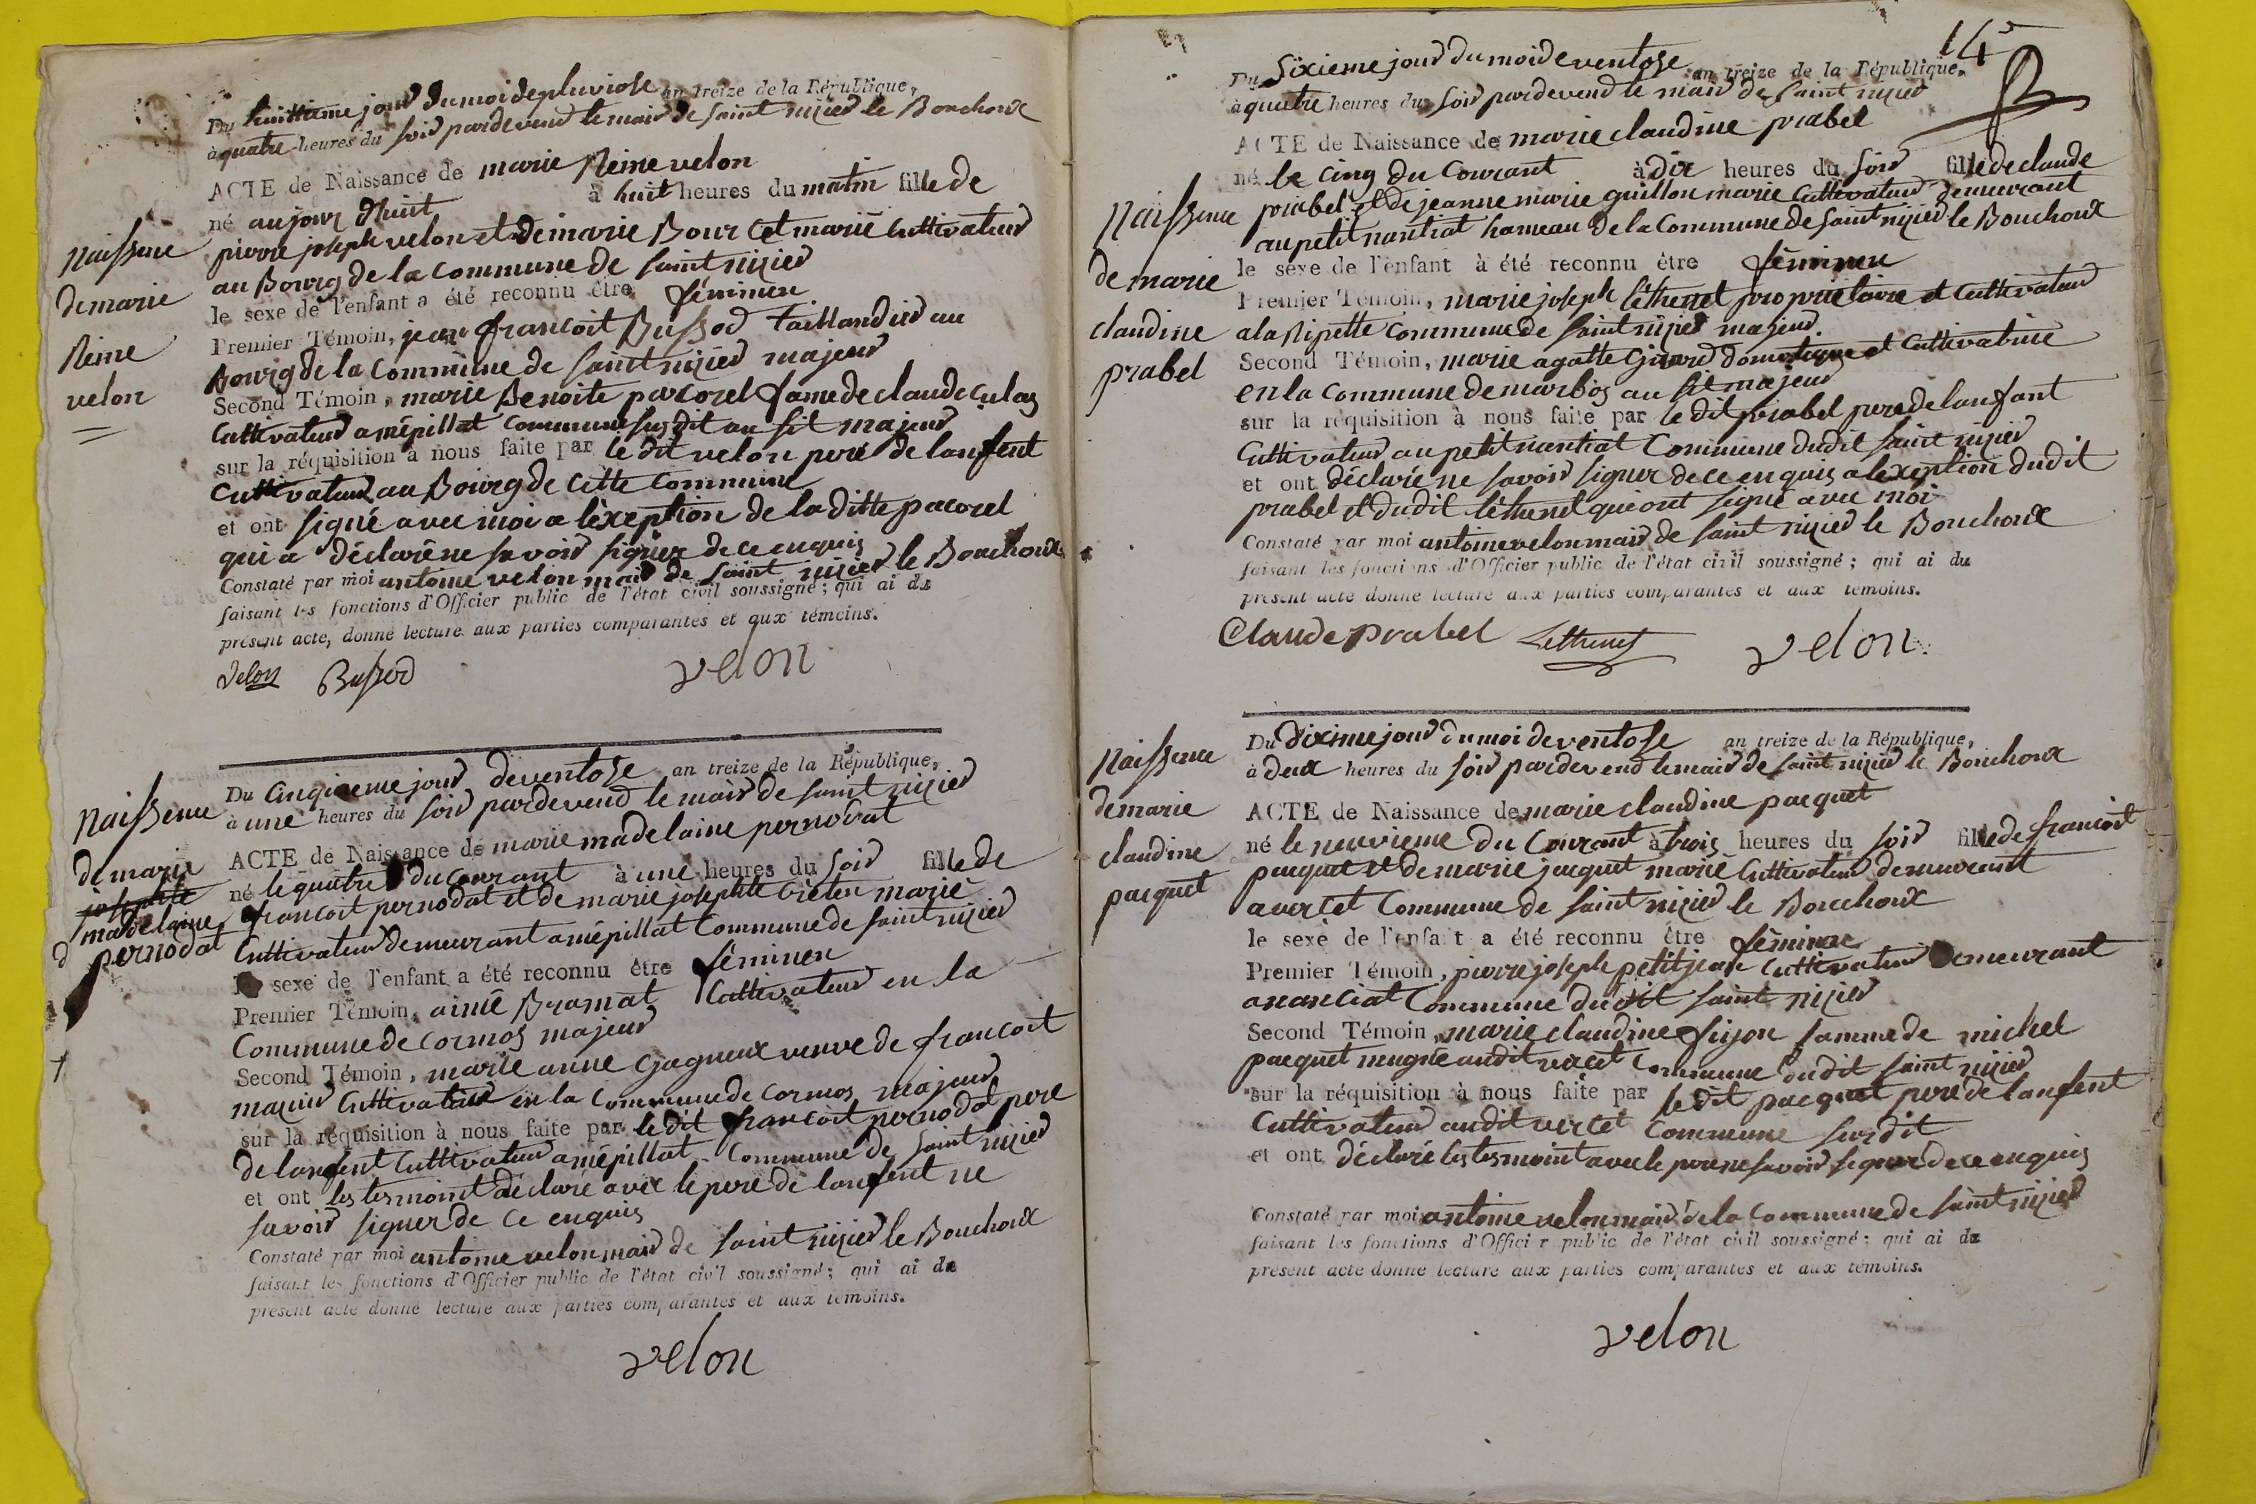 Du huittieme jour du moi de pluviose an treize de la République,
à quatre heures du soir pardevend le mair de saint nizier le Bouchoux
ACTE de Naissance de marie Reine velon
né aujour dhuit à huit heures du matin fille de
pierre joseph velon et de marie Bour cet marié Cultivateur
au Bourg de la commune de saint nizier
le sexe de l'enfant a été reconnu être féminen
Premier Témoin, jean francoit Bussod taillandier au
bourg de la commune de saint nizier majeur
Second Témoin, marie Benoite pacorel fame de claude Culas
Cultivateur a mépillat commune susdit au sit majeur
sur la réquisition à nous faite par le dit velon peré de lanfent
Cultivateur au Bourg de cette commune
et ont signé avec moi a léxeption de la ditte pacorel
qui a déclaré ne savoir signer de ce enquis
Constaté par moi antoine velon mair de saint nizier le Bouchoux
faisant les fonctions d'Officier public de l'état civil soussigné ; qui ai du
présent acte, donné lecture aux parties comparantes et aux témoins.
velon Bussod velon
naissene
de marie
Reine
velon
Du Cinqieme jour de ventose an treize de la République,
à une heures du soir pardevend le mair de saint nizier
ACTE de Naissance de marie madelaine pernodat
né le quatre du courant à une heures du soir fille de
francoit pernodat et de marie josephte marié
Cultivateur demeurant a mépillat Commune de saint nizier
sexe de l'enfant a été reconnu être féminen
Premier Témoin, aimé Bramat Cultivateur en la
Commune de cormos majeur
Second Témoin, marie anne Gagneux veuve de francoit
mazuir Cultivateur en la Commune de cormos majeur
sur la réquisition à nous faite par le dit francoit pernodat pere
de lanfent Cultivateur a mépillat Commune de saint nizier
et ont les tesmoint déclaré avec le peré de lanfent ne
savoir signer de ce enquis
Constaté par moi antoine velon mair de saint nizier le Bouchoux
faisant les fonctions d'Officier public de l'état civil soussigné ; qui ai du
présent acte donné lecture aux parties comparantes et aux témoins.
velon
naissene
de marie
josephte
madelaine
pernodat
14
Du Sixieme jour du moi de ventose an treize de la République,
à quatre heures du soir pardevend le mair de saint nizier
ACTE de Naissance de marie claudine prabel
né le cinq du Courant à dix heures du soir fille de claude
prabel et de jeanne marie guillon marie Cultivateur demeurant
au petit nantiat hameau de la Commune de saint nizier le Bouchoux
le sexe de l'enfant à été reconnu être féminen
Premier Témoin, marie joseph léthenet proprietaire et Cultivateur
a la Ripette commune de saint nizier majeur.
Second Témoin, marie agatte Girard domestique et Cultivatrice
en la commune de marbos au sit majeur
sur la réquisition à nous faite par le dit prabel pere de lanfant
Cultivateur au petit nantiat Commune dudit saint nizier
et ont déclaré ne savoir signer de ce enquis a lexeption dudit
prabel et dudit léthenet qui ont signé avec moi
Constaté par moi antoine velon mair de saint nizier le Bouchoux
faisant les fonctions d'Officier public de l'état civil soussigné ; qui ai du
présent acte donné lecture aux parties comparantes et aux témoins.
Claude prabel Lethenet velon
naissene
de marie
claudine
prabel
Du Dixime jour du moi de ventose an treize de la République,
à deux heures du soir pardevend le mair de saint nizier le Bouchoux
ACTE de Naissance de marie claudine pacquet
né le neuvieme du Courant à trois heures du soir fille de francoit
pacquet et de marie jacquet marié Cultivateur demeurant
a vercet Commune de saint nizier le Bouchoux
le sexe de l'enfant a été reconnu être féminen
Premier Témoin, pierre joseph petitjean Cultivateur demeurant
a nanciat Commune dudit saint nizier
Second Témoin, marie claudine fuyon famme de michel
pacquet mugné audit vercet Commune dudit saint nizier
sur la réquisition à nous faite par le dit pacquet peré de lanfent
Cultivateur audit vercet Commune surdit
et ont déclaré les tesmoint avec le pere ne savoir signer de ce enquis
Constaté par moi antoine velon mair de la Commune de saint nizier
faisant les fonctions d'Officier public de l'état civil soussigné ; qui ai du
présent acte donné lecture aux parties comparantes et aux témoins.
velon
naissene
de marie
claudine
pacquet